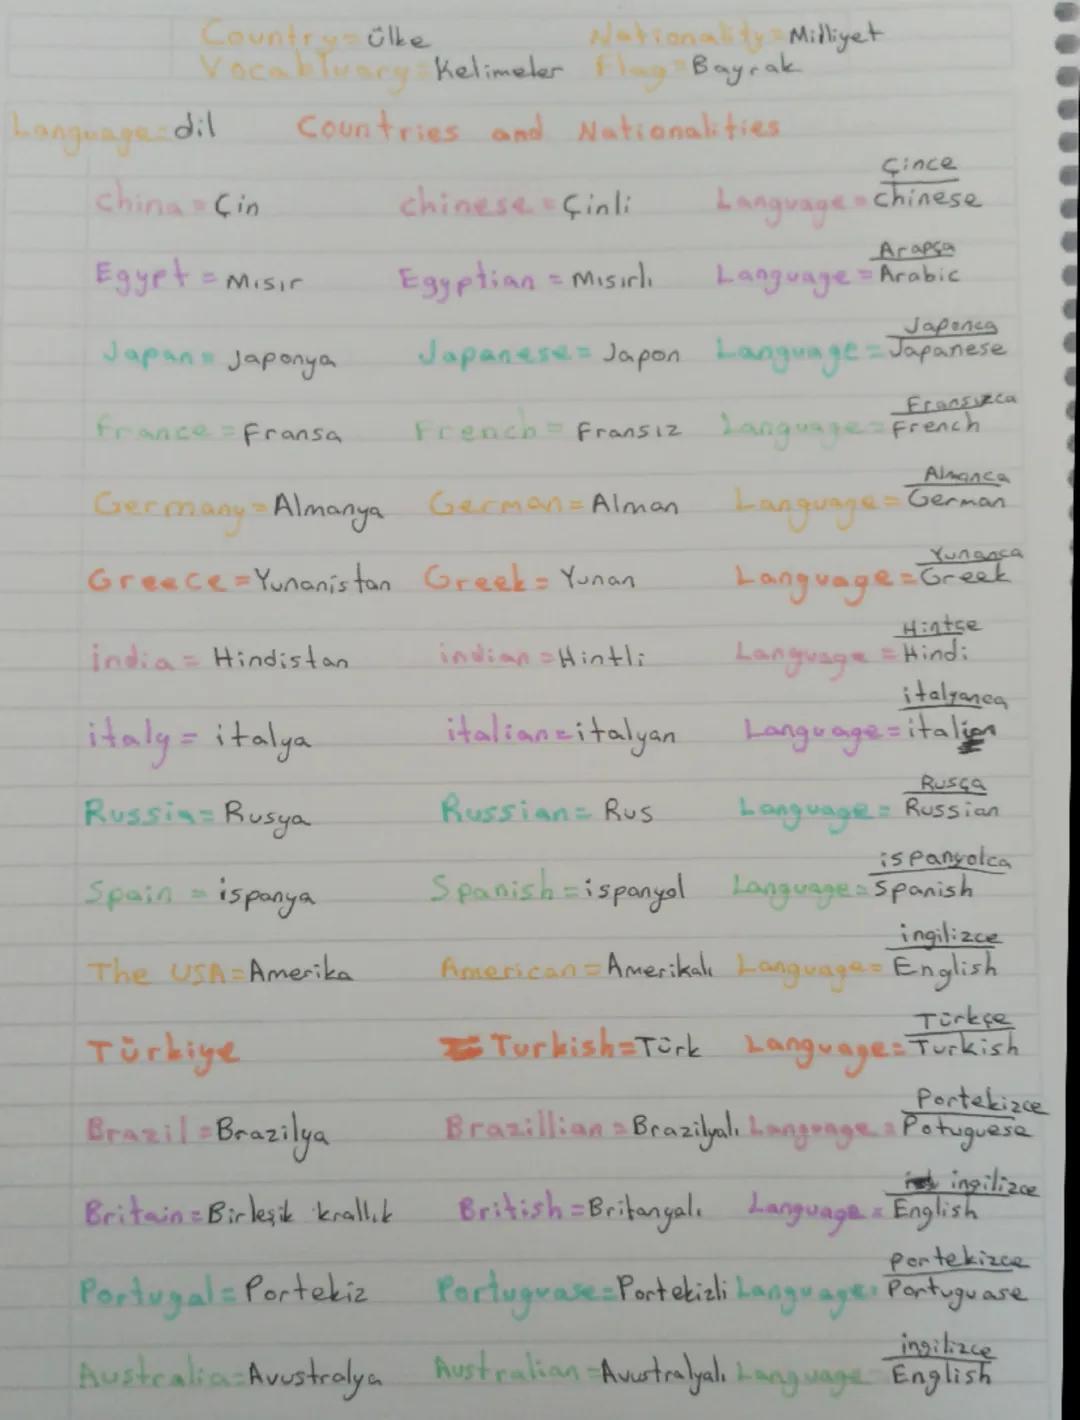 Country = ülke Nationality = Milliyet
Vocabluary = Kelimeler Flag = Bayrak
Language = dil Countries and Nationalities
Çince
china = Çin chinese = Çinli Language = chinese
Arapça
Egypt = Mısır Egyptian = Mısırlı Language = Arabic
Japonca
Japan = Japonya Japanese = Japon Language = Japanese
Fransızca
France = Fransa French = Fransız Language = French
Almanca
Germany = Almanya German = Alman Language = German
Yunanca
Greece = Yunanistan Greek = Yunan Language = Greek
Hintçe
india = Hindistan indian = Hintli Language = Hindi
italyanca
italy = italya italian = italyan Language = italian
Rusça
Russia = Rusya Russian = Rus Language = Russian
ispanyolca
Spain = ispanya Spanish = ispanyol Language = Spanish
ingilizce
The USA = Amerika American = Amerikalı Language = English
Türkçe
Türkiye Turkish = Türk Language = Turkish
Portekizce
Brazil = Brazilya Brazillian = Brazilyalı Language = Potuguese
ingilizce
Britain = Birleşik krallık British = Britanyalı Language = English
portekizce
Portugal = Portekiz Portuguase = Portekizli Language = Portuguase
ingilizce
Australia = Avustralya Australian = Avustralyalı Language = English